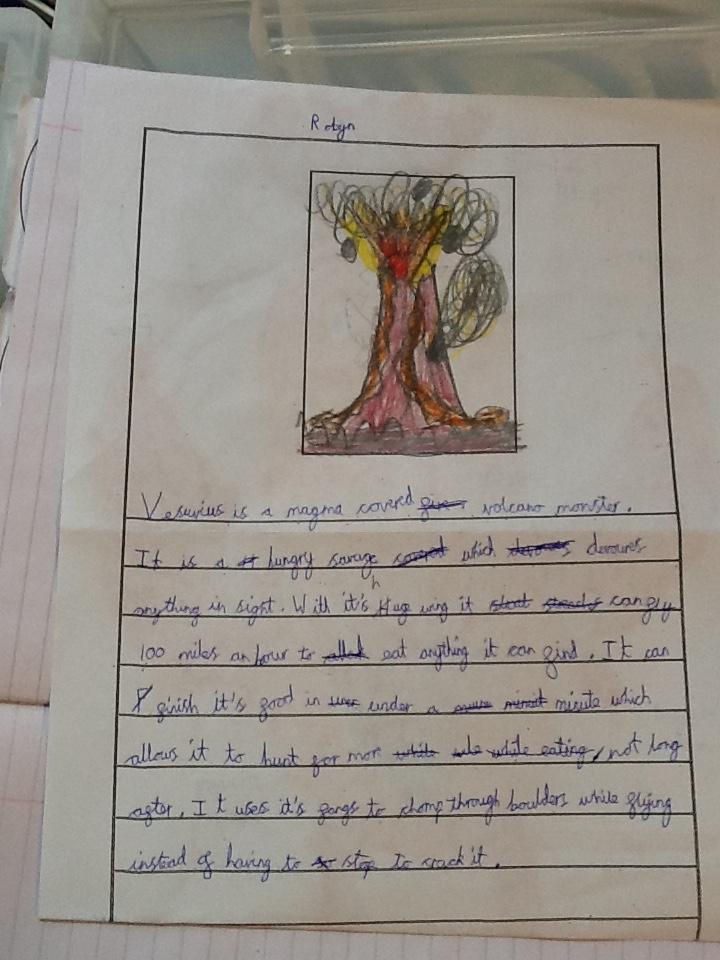 Robyn
Vesuvius is a magma covered volcano monster.
It is a hungry savage which devoures
anything in sight. With it's huge wing it can fly
100 miles an hour to eat anything it can find. It can
finish it's food in under a minute which
allows it to hunt for mor not long
after. It uses it's fangs to chomp through boulders while flying
instead of having to stop to crack it.